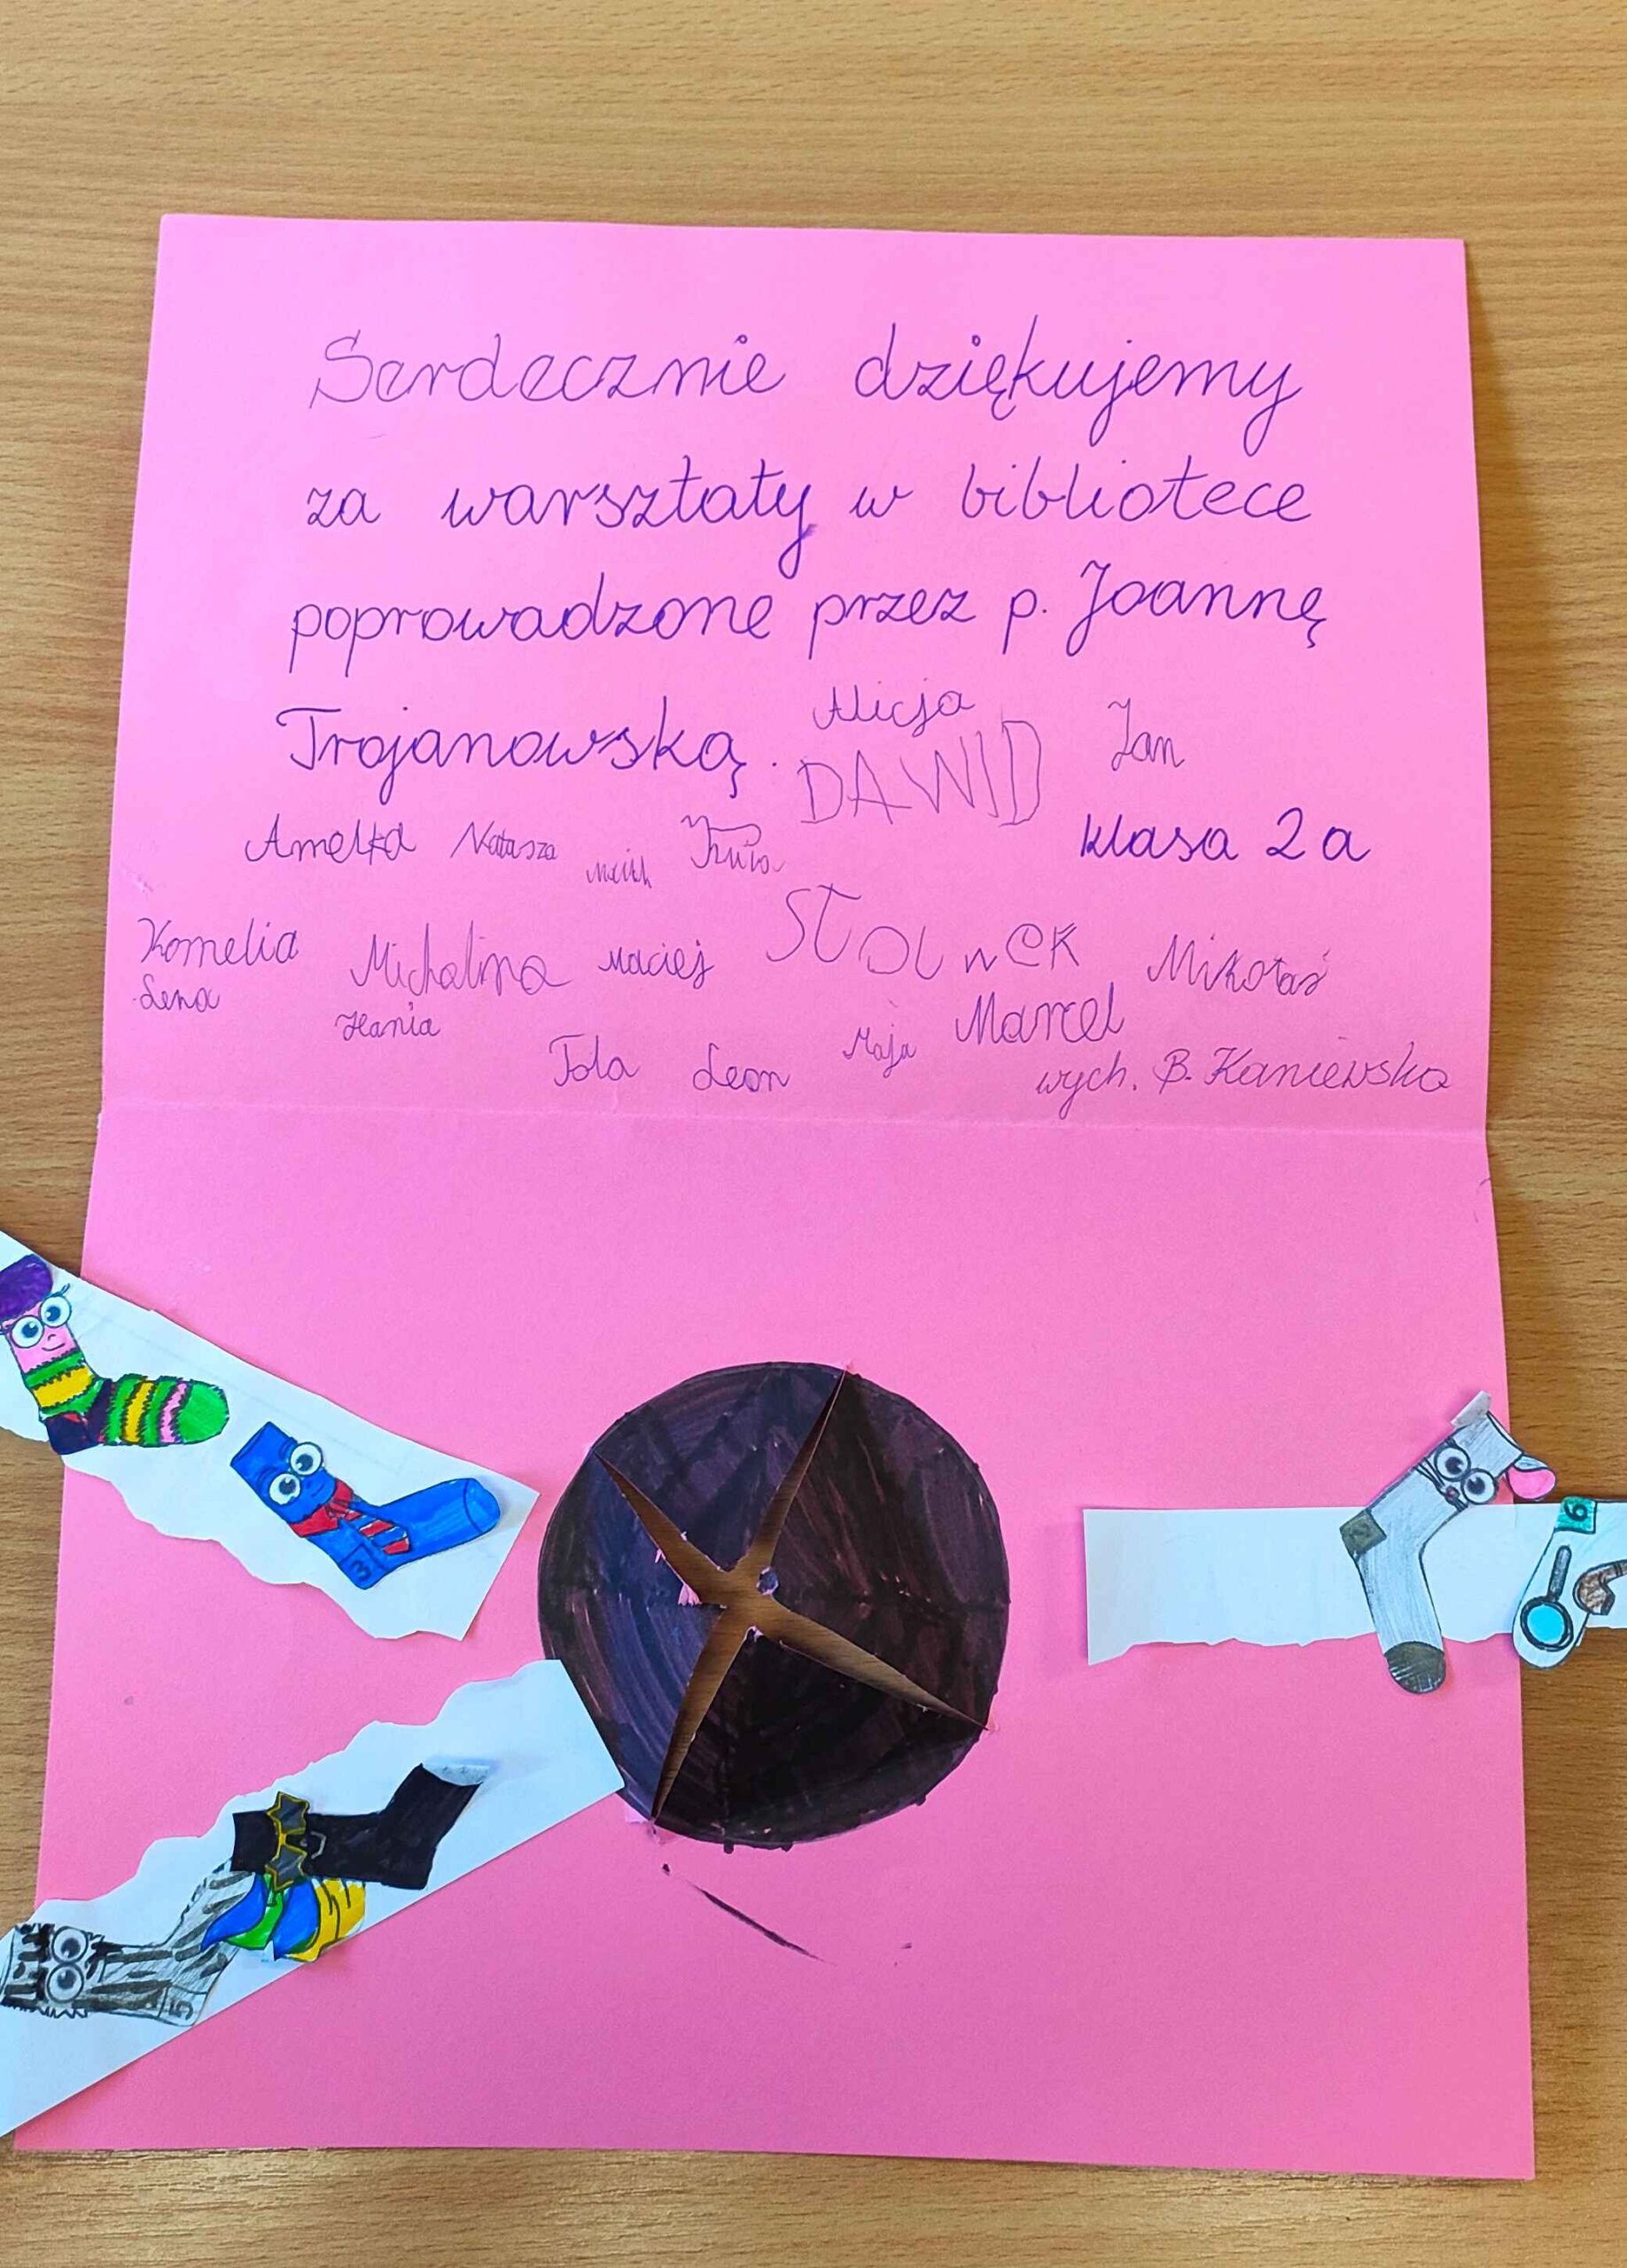 Serdecznie dziękujemy
za warsztaty w bibliotece
poprowadzone przez p. Joannę
Trojanowską.
Alicja
Jan
DAWID
klasa 2a
Amelka Natasza
Kornelia Michalina Maciej Mikołaj
Lena Hania Marcel
Tola Leon Maja
wych. B. Kaniewska
3
5
6